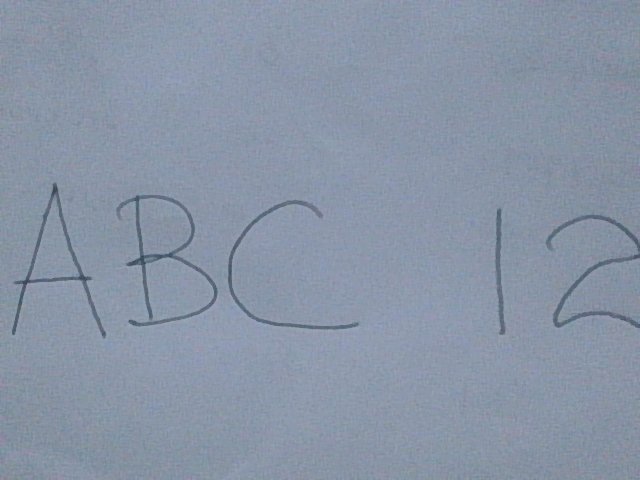 ABC 12